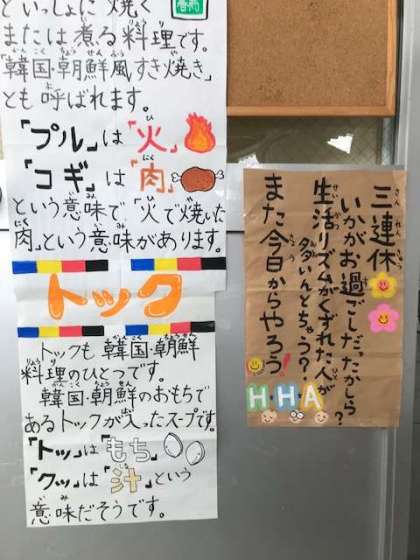 といっしょに焼く
または煮る料理です。
「韓国・朝鮮風すき焼き」
とも呼ばれます。
「プル」は「火」
「コギ」は「肉」
という意味で「火で焼いた
肉」という意味があります。
トック
トックも韓国・朝鮮
料理のひとつです。
韓国・朝鮮のおもちで
あるトックが入ったスープです。
「トッ」は「もち」
「クッ」は「汁」という
意味だそうです。
三連休
いかがお過ごしだったかしら?
生活リズムがくずれた人が
多いんとちゃう?
また今日からやろう!
H・H・A